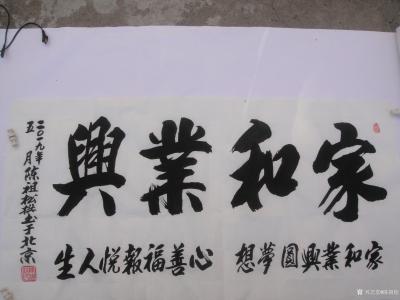 家和業興
家和業興圓夢想 心善福報悦人生
二〇一九年
五月陈祖松书于北京